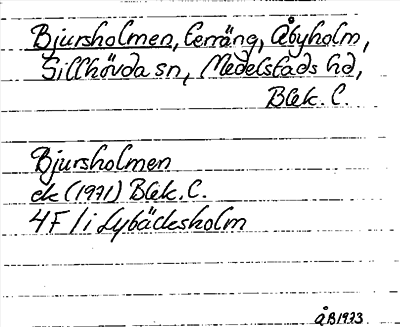 Bjursholmen, Cerräng, Åbyholm,
Sillhövda sn, Medelstads hd,
Blek. C.
Bjursholmen
ek (1971) Blek. C.
4F / i Lybäcksholm
ÅB1973